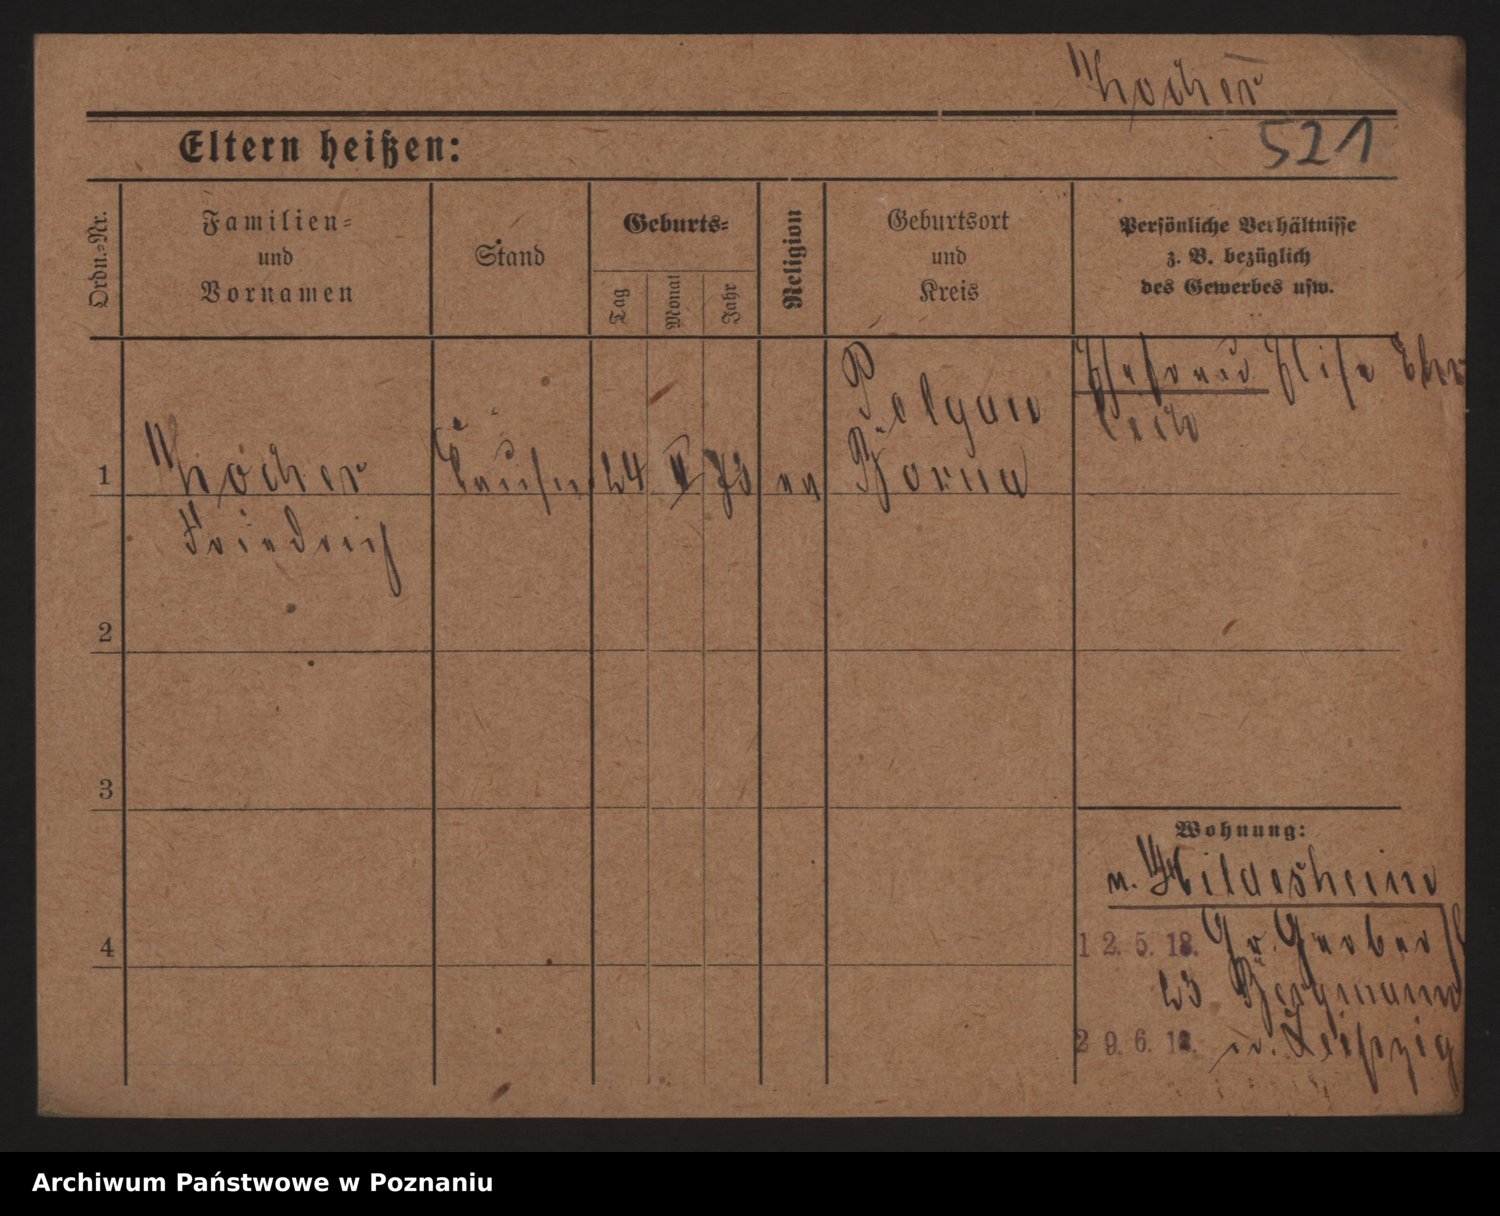 Kocher
521
Eltern heißen:
Ordn.=Nr.
Familien=
und
Vornamen
Stand
Geburts=
Tag
Monat
Jahr
Religion
Geburtsort
und
Kreis
Persönliche Verhältnisse
z. B. bezüglich
des Gewerbes usw.
1
Kocher
Friedrich
24
73
ev
Borna
Ehefrau Elise
2
3
4
Wohnung:
n. Hildesheim
12. 5. 18. Gr. Gerber
23 Bergmann
29. 6. 18. n. Leipzig
Archiwum Państwowe w Poznaniu